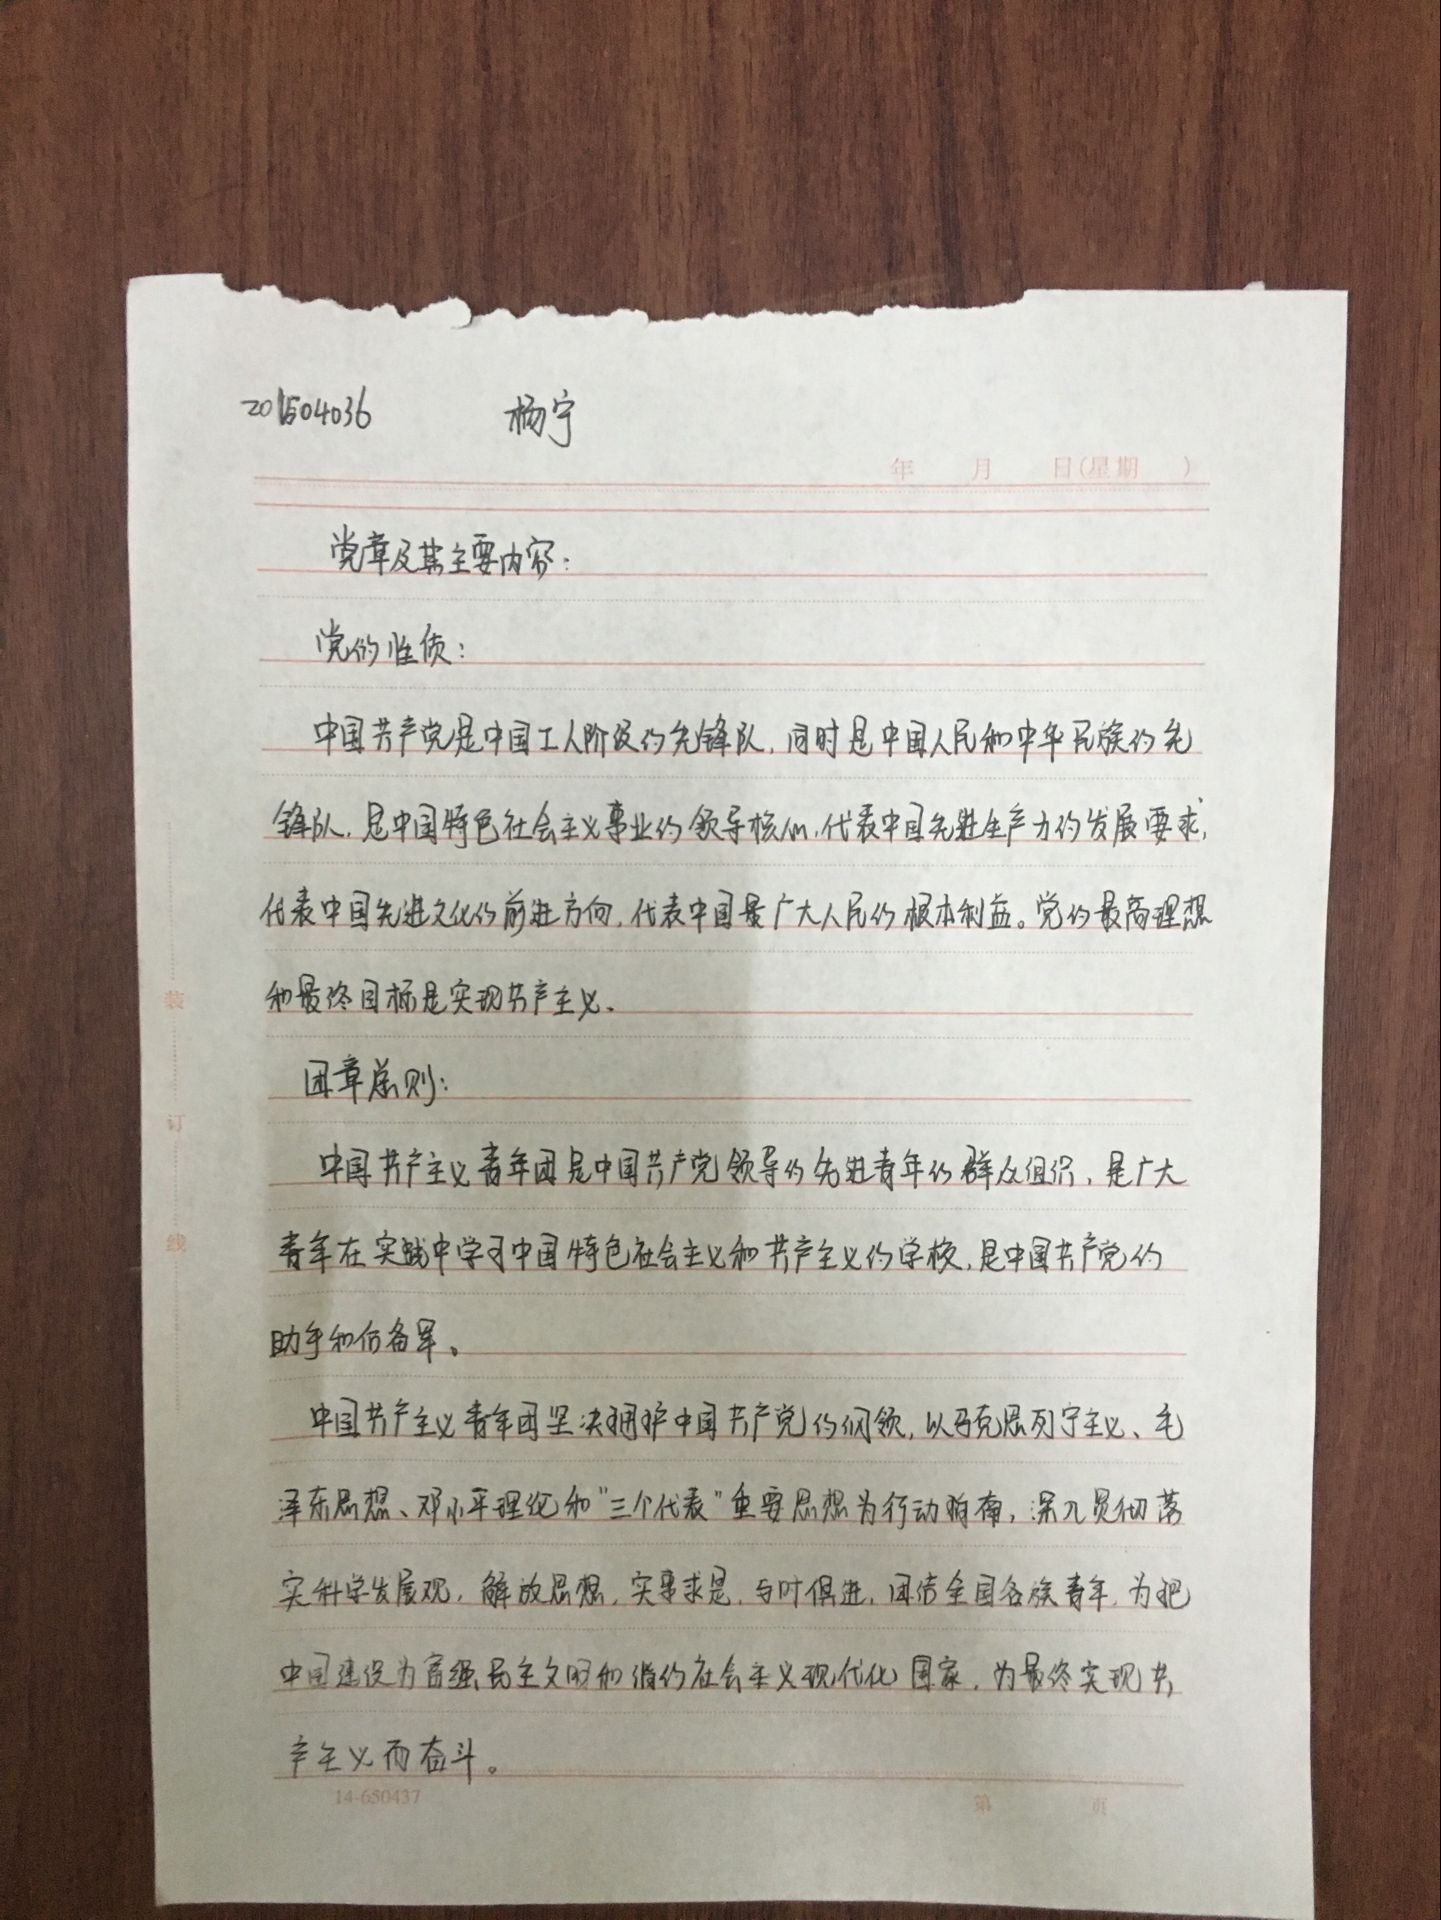 201504036 杨宁
年 月 日(星期 )
党章及其主要内容：
党的性质：
中国共产党是中国工人阶级的先锋队，同时是中国人民和中华民族的先
锋队，是中国特色社会主义事业的领导核心，代表中国先进生产力的发展要求，
代表中国先进文化的前进方向，代表中国最广大人民的根本利益。党的最高理想
和最终目标是实现共产主义。
团章总则：
中国共产主义青年团是中国共产党领导的先进青年的群众组织，是广大
青年在实践中学习中国特色社会主义和共产主义的学校，是中国共产党的
助手和后备军。
中国共产主义青年团坚决拥护中国共产党的纲领，以马克思列宁主义、毛
泽东思想、邓小平理论和“三个代表”重要思想为行动指南，深入贯彻落
实科学发展观，解放思想，实事求是，与时俱进，团结全国各族青年，为把
中国建设为富强民主文明和谐的社会主义现代化国家，为最终实现共
产主义而奋斗。
14-650437 第 页
装
订
线